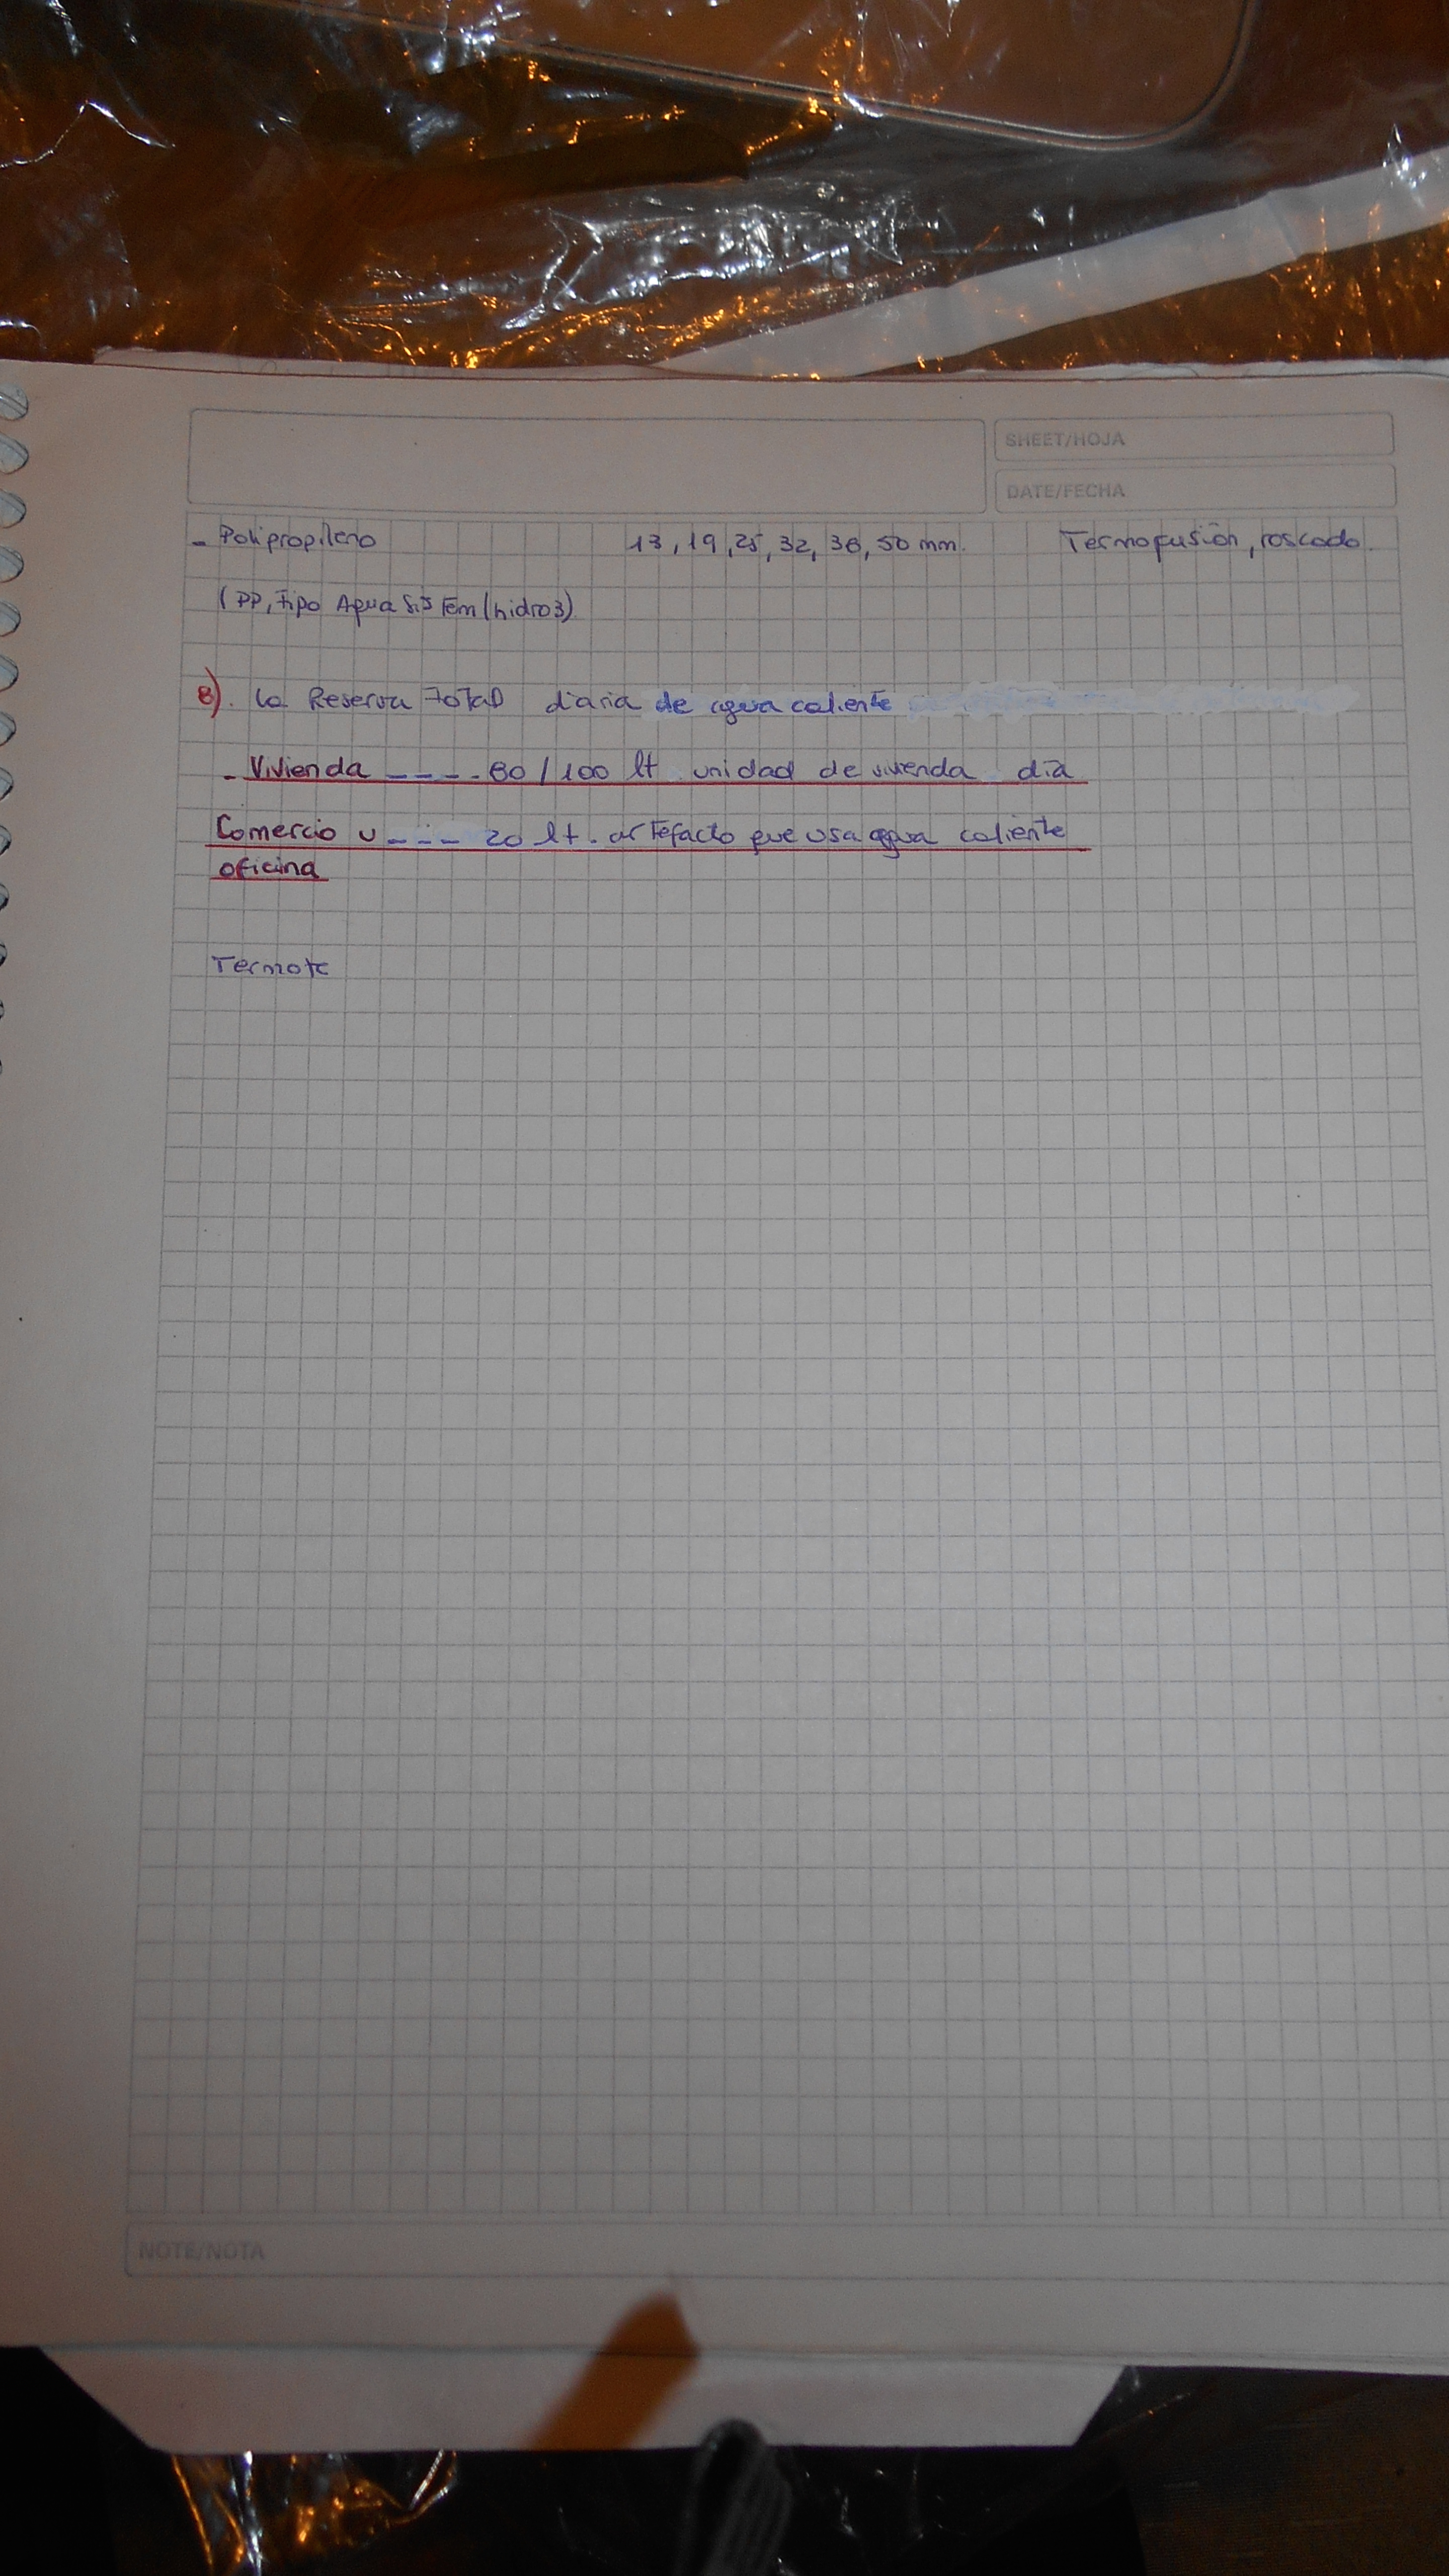 SHEET/HOJA
DATE/FECHA
- Polipropileno 13, 19, 25, 32, 38, 50 mm. Termofusión, roscado.
(PP, Tipo Agua Sistem (hidro3)
8). La Reserva Total diaria de agua caliente
- Vivienda ---- 80/100 lt. unidad de vivienda. día
Comercio u ---- 20 lt. artefacto que usa agua caliente
oficina
Termote
NOTE/NOTA